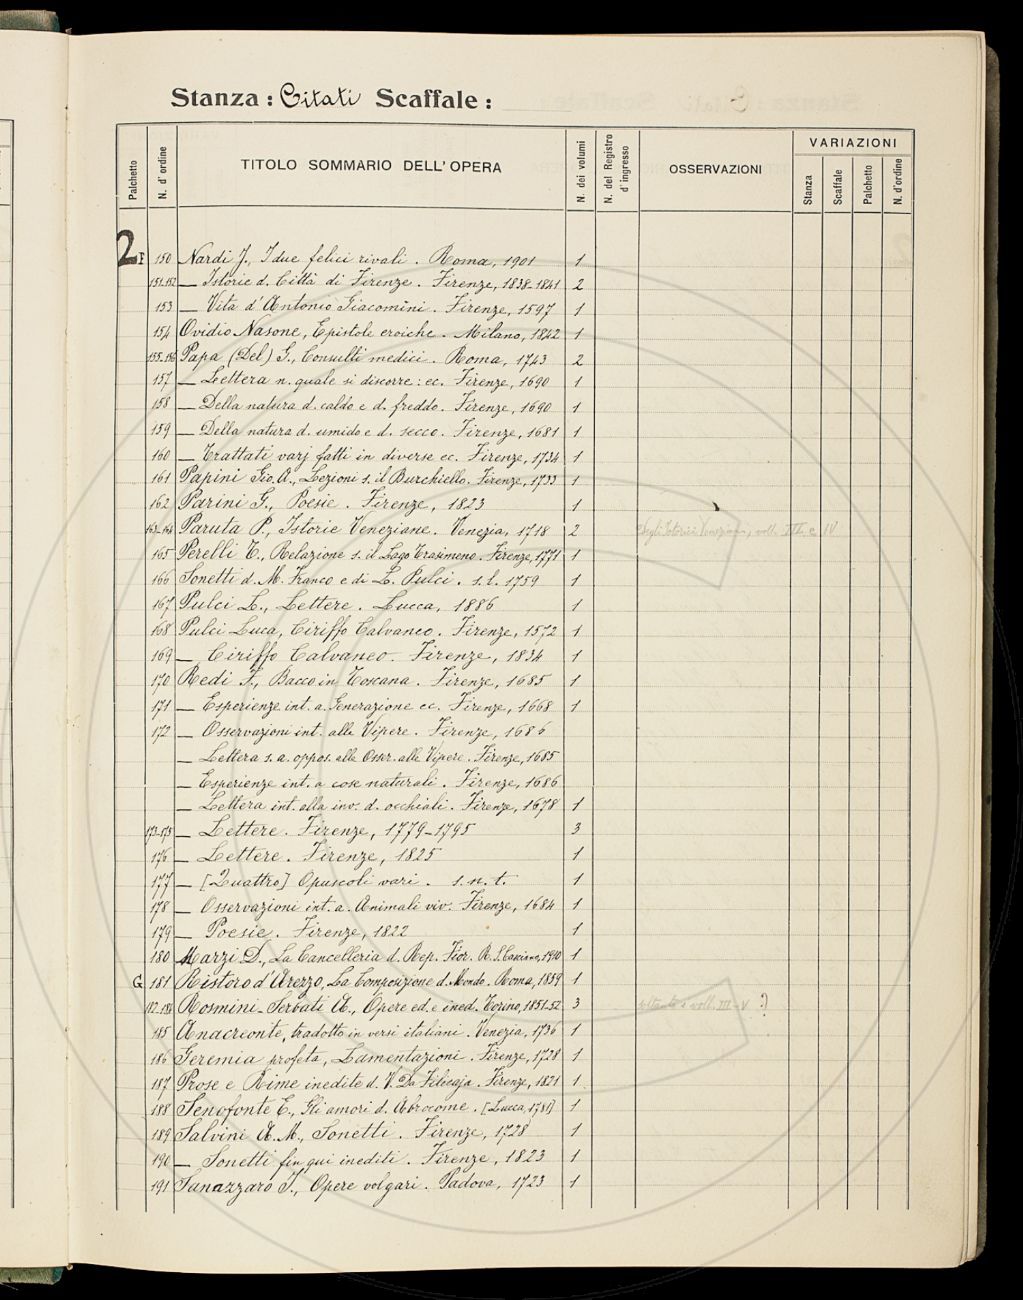 Stanza: Citati Scaffale:
Palchetto N. d'ordine TITOLO SOMMARIO DELL'OPERA N. dei volumi N. del Registro d'ingresso OSSERVAZIONI VARIAZIONI
Stanza Scaffale Palchetto N. d'ordine
2 F 150 Nardi J., I due felici rivali. Roma, 1901 1
151-152 — Istorie d. Città di Firenze. Firenze, 1838-1841 2
153 — Vita d'Antonio Giacomini. Firenze, 1597 1
154 Ovidio Nasone, Epistole eroiche. Milano, 1842 1
155-156 Papa (Del) G., Consulti medici. Roma, 1743 2
157 — Lettera n. quale si discorre: ec. Firenze, 1690 1
158 — Della natura d. caldo e d. freddo. Firenze, 1690 1
159 — Della natura d. umido e d. secco. Firenze, 1681 1
160 — Trattati varj fatti in diverse ec. Firenze, 1734 1
161 Papini Gio. A., Lezioni s. il Burchiello. Firenze, 1733 1
162 Parini G., Poesie. Firenze, 1823 1
163-164 Paruta P., Istorie Veneziane. Venezia, 1718 2 Istorici Veneziani, voll. III e IV
165 Perelli T., Relazione s. il Lago Trasimeno. Firenze, 1771 1
166 Sonetti d. M. Franco e di L. Pulci. s.l. 1759 1
167 Pulci L., Lettere. Lucca, 1886 1
168 Pulci Luca, Ciriffo Calvaneo. Firenze, 1572 1
169 — Ciriffo Calvaneo. Firenze, 1834 1
170 Redi F., Bacco in Toscana. Firenze, 1685 1
171 — Esperienze int. a. Generazione ec. Firenze, 1668 1
172 — Osservazioni int. alle Vipere. Firenze, 1686
— Lettera s. a. oppos. alle Osser. alle Vipere. Firenze, 1685
— Esperienze int. a cose naturali. Firenze, 1686
— Lettera int. alla inv. d. occhiali. Firenze, 1678 1
173-175 — Lettere. Firenze, 1779-1795 3
176 — Lettere. Firenze, 1825 1
177 — [Quattro] Opuscoli vari. s.n.t. 1
178 — Osservazioni int. a. Animali viv. Firenze, 1684 1
179 — Poesie. Firenze, 1822 1
180 Marzi D., La Cancelleria d. Rep. Fior. R. S. Casciano, 1910 1
G 181 Ristoro d'Arezzo, La Composizione d. Mondo. Roma, 1859 1
182-184 Rosmini-Serbati A., Opere ed. e ined. Torino, 1851-52 3 voll. III-V ?]
185 Anacreonte, tradotto in versi italiani. Venezia, 1736 1
186 Geremia profeta, Lamentazioni. Firenze, 1728 1
187 Prose e Rime inedite d. V. Da Filicaja. Firenze, 1821 1
188 Senofonte E., Gli amori d. Abrocome. [Lucca, 1781] 1
189 Salvini A. M., Sonetti. Firenze, 1728 1
190 — Sonetti fin qui inediti. Firenze, 1823 1
191 Sanazzaro J., Opere volgari. Padova, 1723 1